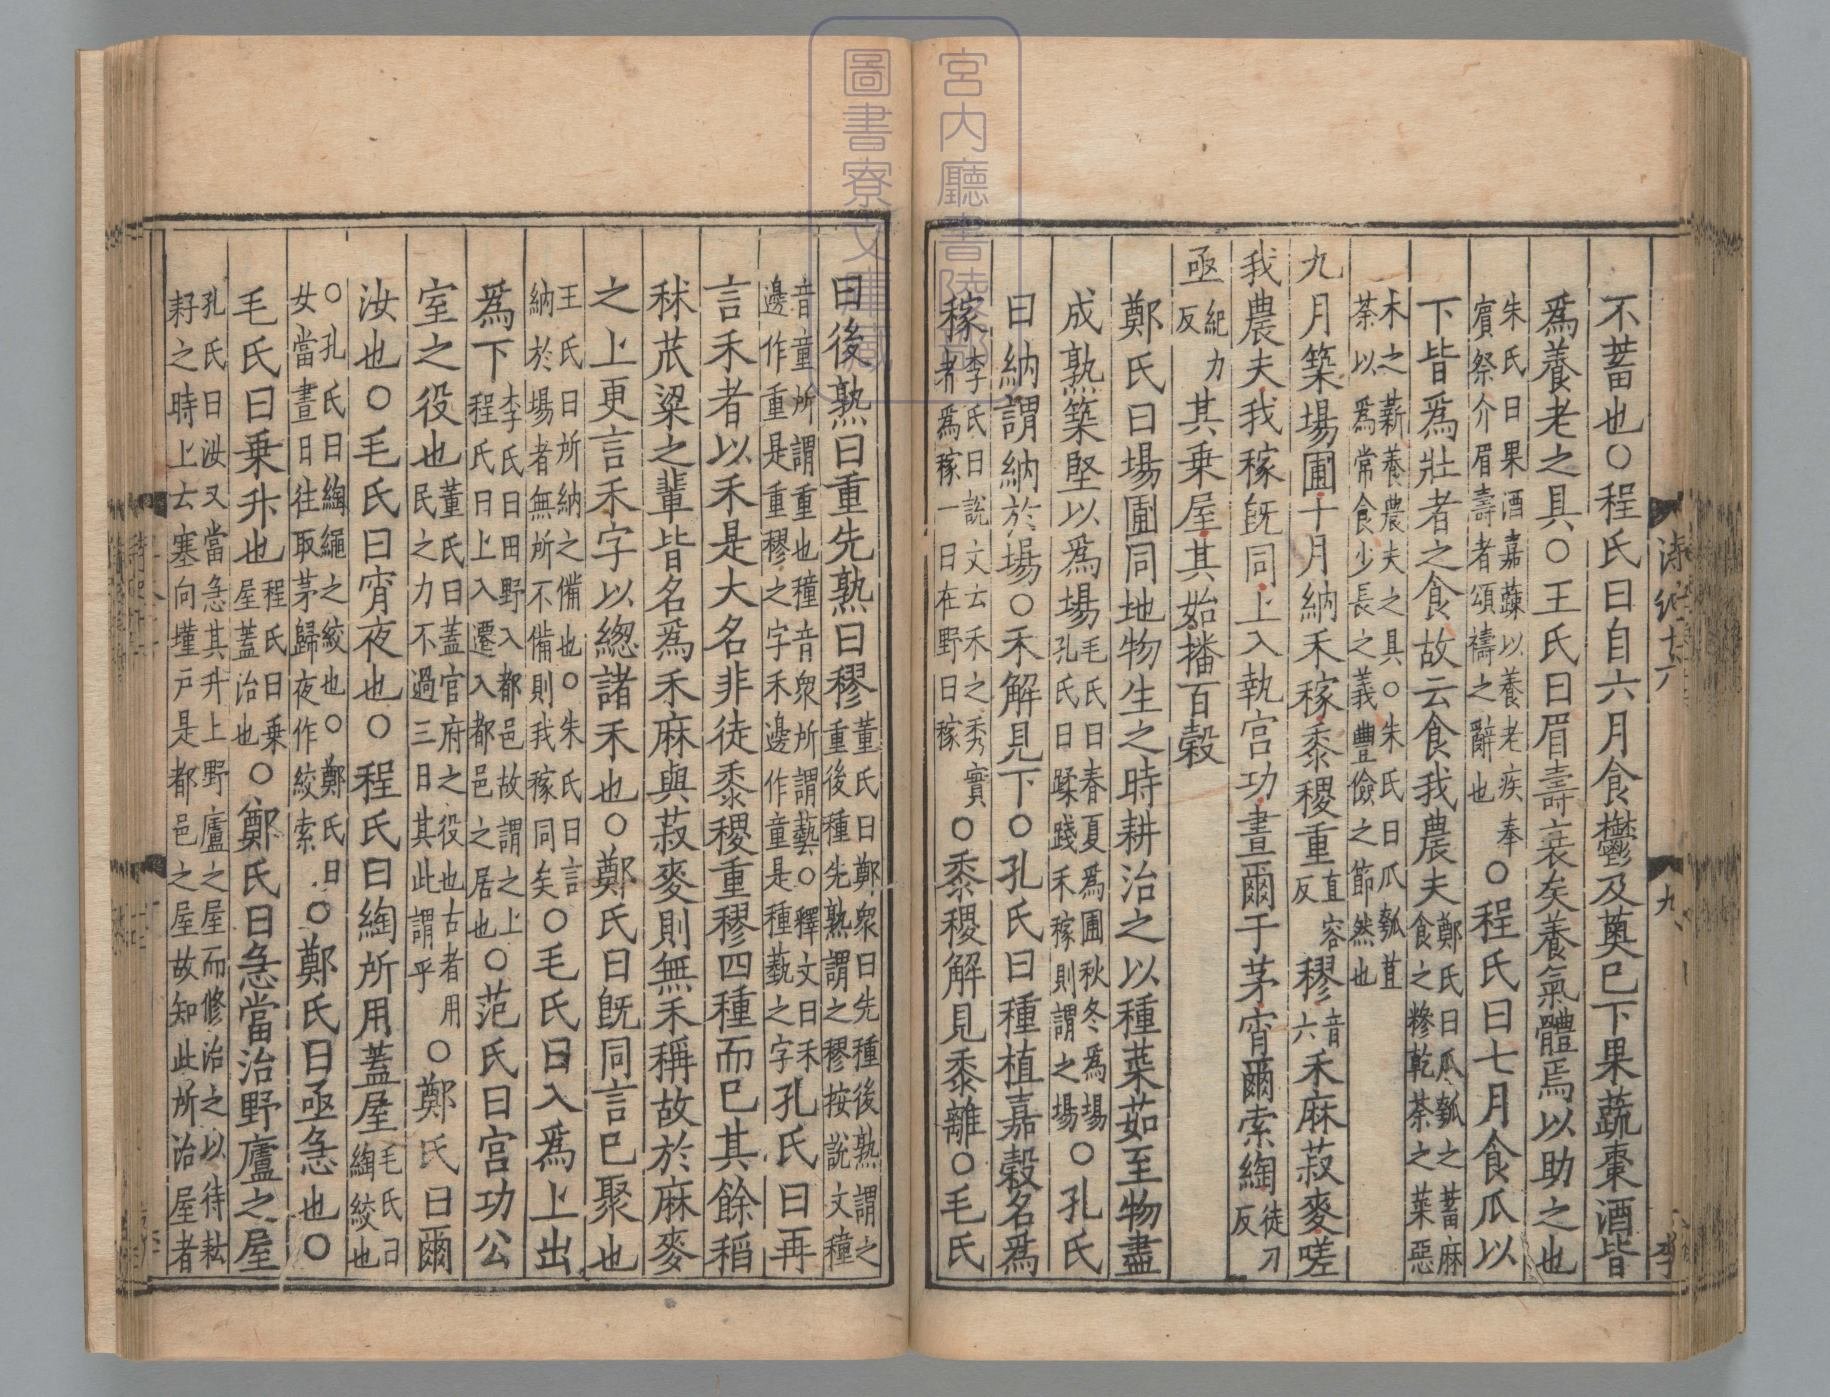 不蓄也○程氏曰自六月食鬱及薁已下果蔬棗酒皆
爲養老之具○王氏曰眉壽衰矣養氣體焉以助之也
朱氏曰果酒嘉蔬以養老疾奉
賓祭介眉壽者頌禱之辭也
○程氏曰七月食瓜以
下皆爲壯者之食故云食我農夫
鄭氏曰瓜瓠之蓄麻
食之糝乾荼之菜惡
木之薪養農夫之具○朱氏曰瓜瓠苴
荼以爲常食少長之義豐儉之節然也
九月築場圃十月納禾稼黍稷重
直容
反
穋
音
六
禾麻菽麥嗟
我農夫我稼旣同上入執宮功晝爾于茅宵爾索綯
徒刀
反
亟
紀力
反
其乗屋其始播百穀
鄭氏曰場圃同地物生之時耕治之以種菜茹至物盡
成熟築堅以爲場
毛氏曰春夏爲圃秋冬爲場
孔氏曰蹂踐禾稼則謂之場
○孔氏
曰納謂納於場○禾解見下○孔氏曰種植嘉穀名爲
稼
李氏曰說文云禾之秀實
者爲稼一曰在野曰稼
○黍稷解見黍離○毛氏
曰後熟曰重先熟曰穋
董氏曰鄭衆曰先種後熟謂之
重後種先熟謂之穋按說文穜
音童所謂重也種音衆所謂藝○釋文曰禾
邊作重是重穋之字禾邊作童是種蓺之字
孔氏曰再
言禾者以禾是大名非徒黍稷重穋四種而已其餘稻
秫苽粱之輩皆名爲禾麻與菽麥則無禾稱故於麻麥
之上更言禾字以總諸禾也○鄭氏曰旣同言已聚也
王氏曰所納之備也○朱氏曰言
納於場者無所不備則我稼同矣
○毛氏曰入爲上出
爲下
李氏曰田野入都邑故謂之上
程氏曰上入遷入都邑之居也
○范氏曰宮功公
室之役也
董氏曰蓋官府之役也古者用
民之力不過三日其此謂乎
○鄭氏曰爾
汝也○毛氏曰宵夜也○程氏曰綯所用蓋屋
毛氏曰
綯絞也
○孔氏曰綯繩之絞也○鄭氏曰
女當晝日往取茅歸夜作絞索
○鄭氏曰亟急也○
毛氏曰乗升也
程氏曰乗
屋蓋治也
○鄭氏曰急當治野廬之屋
孔氏曰汝又當急其升上野廬之屋而修治之以待耘
耔之時上云塞向墐戶是都邑之屋故知此所治屋者
九
李